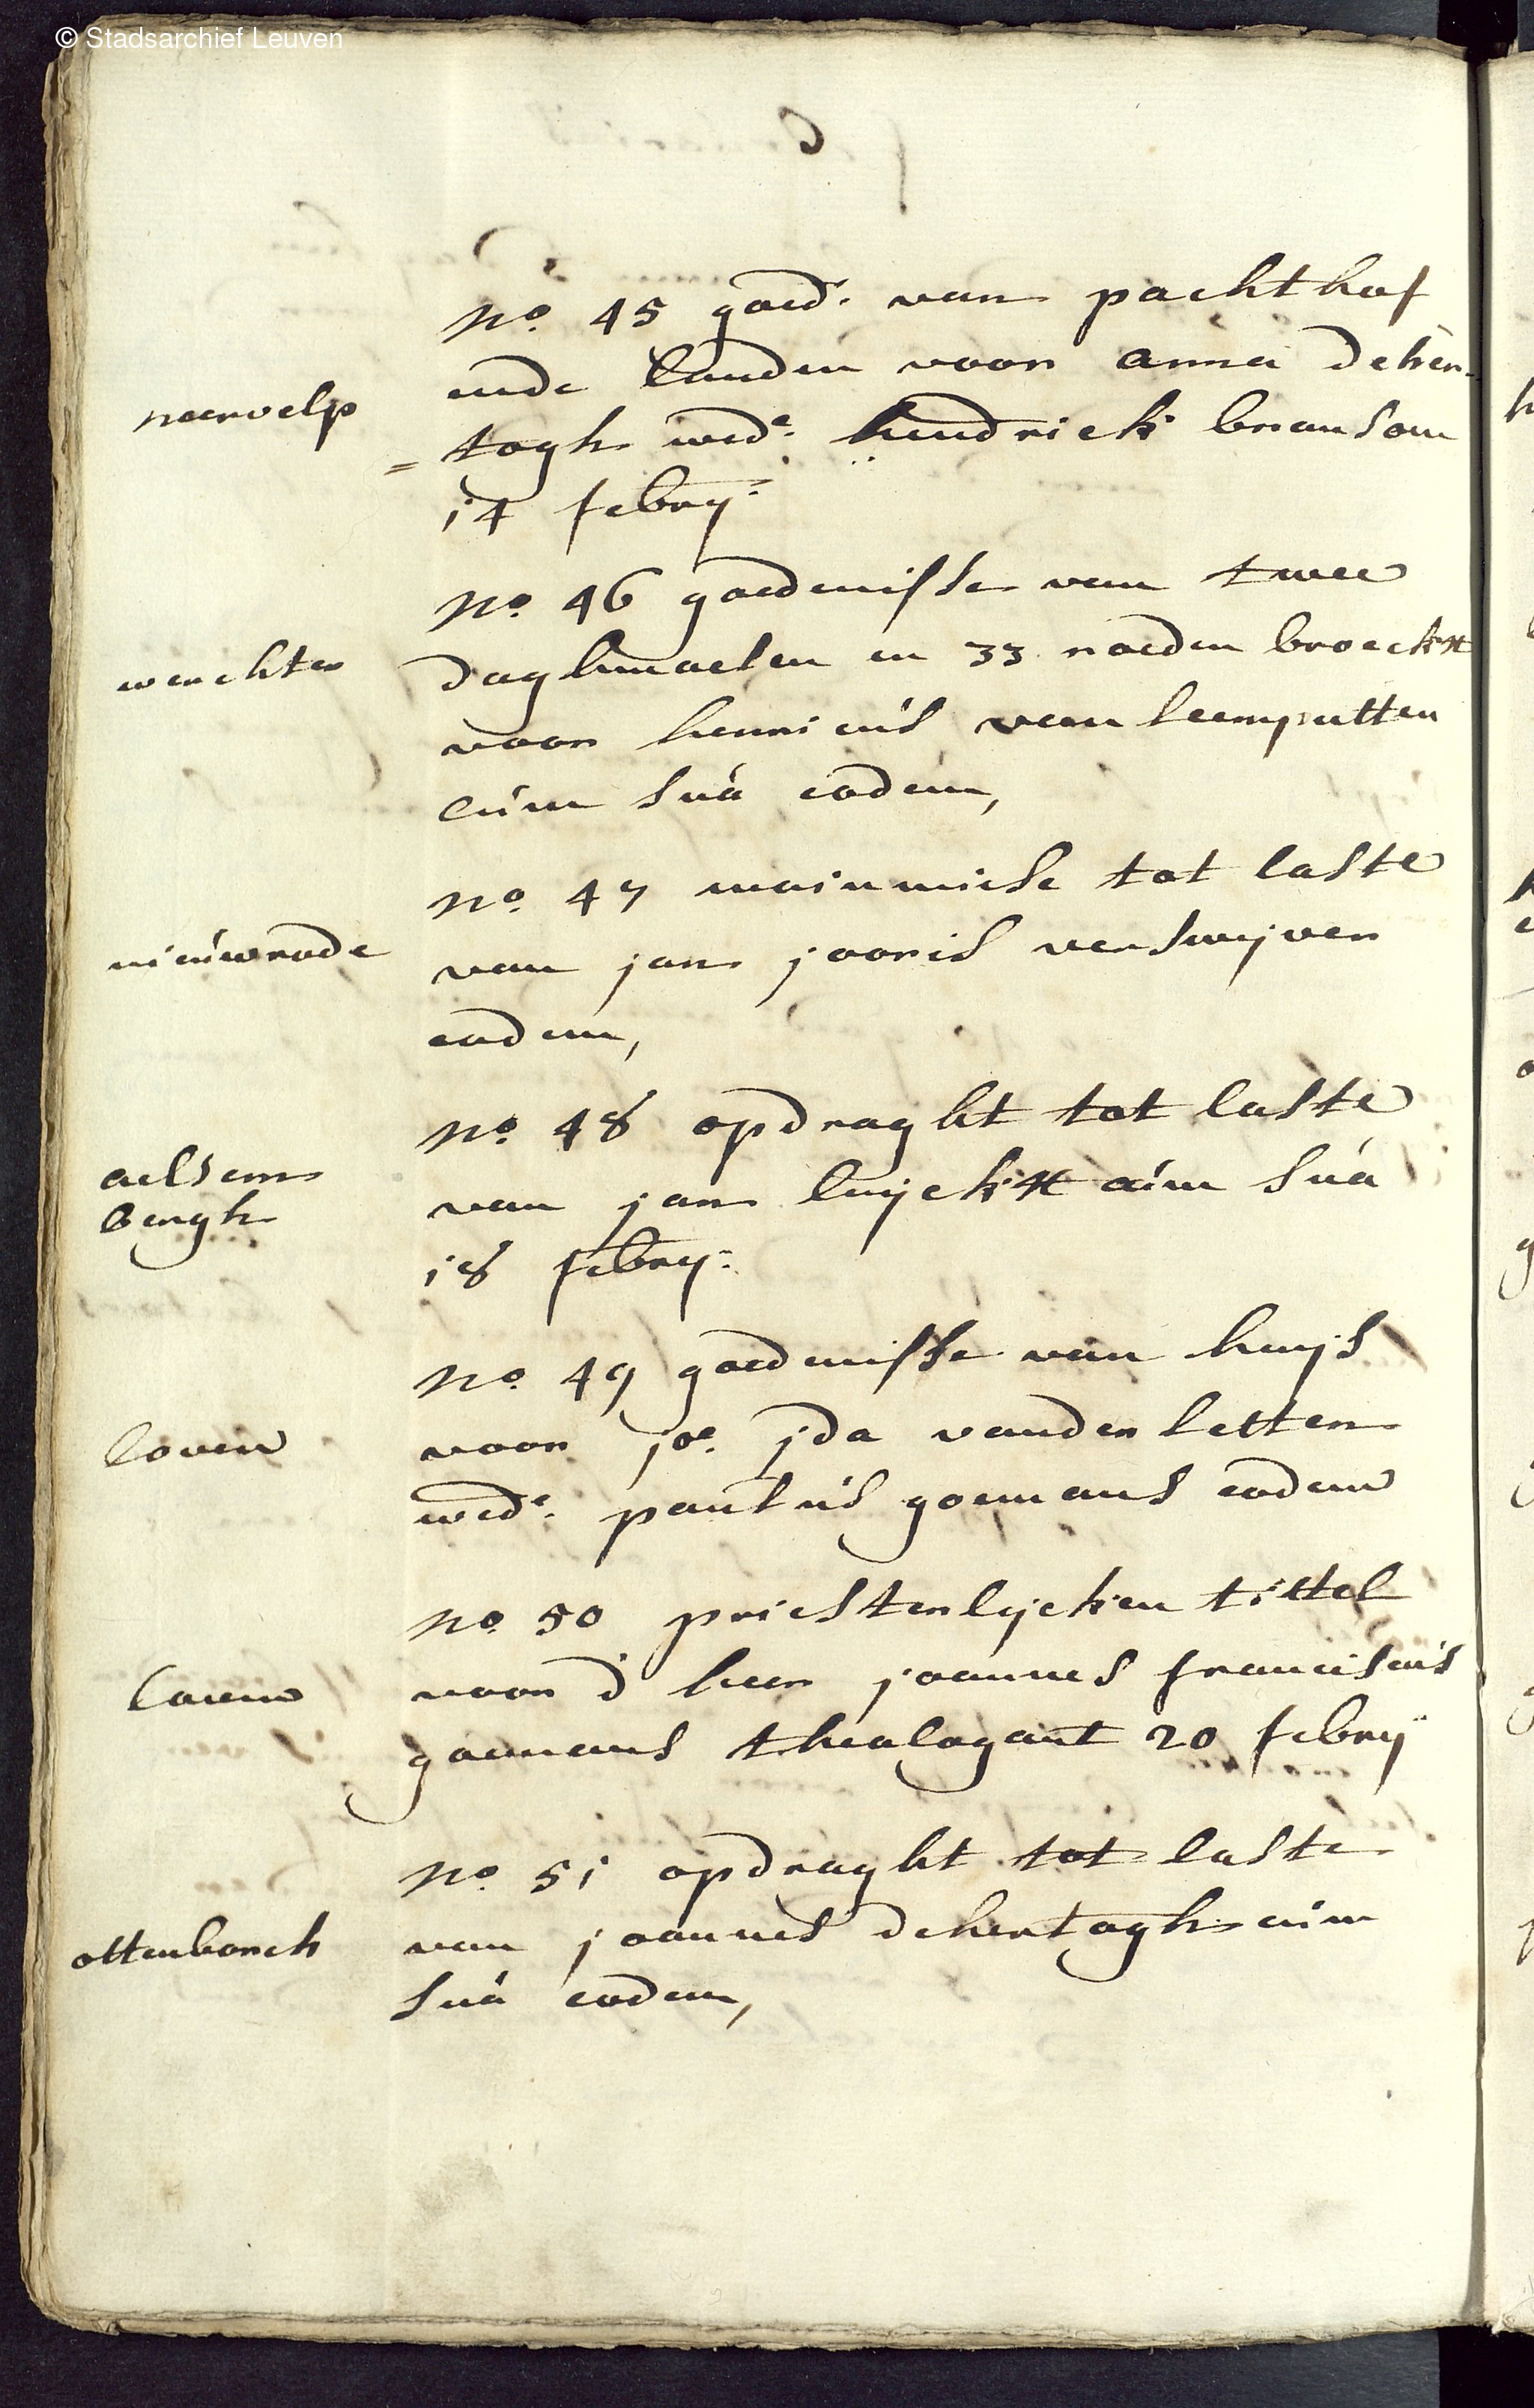 © Stadsarchief Leuven
no. 45 goed: van pachthof
neervelp
ende landen voor anna deher-
= togh wede: hendrick bransom
14 febry:
no. 46 goedenisse van twee
werchter
daghmaelen en 33 roeden broeckx
voor henricus van leemputten
cum sua eodem,
no. 47 mainmiese tot laste
nieuwrode
van jan jooris verswijver
eodem,
no. 48 opdraght tot laste
aelsem
bergh
van jan luyckx cum sua
18 febry:
no. 49 goedenisse van huys
loven
voor joe. jda vander letten
wede: paulus goemans eodem
no. 50 priesterlycken tittel
loven
voor d' heer joannes franciscus
goemans theologant 20 febry
no. 51 opdraght tot laste
ottenborch
van joannes dehertogh cum
sua eodem,